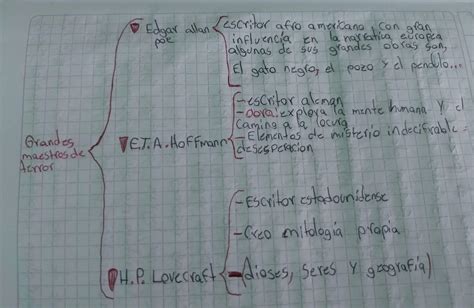 Grandes
maestros de
terror
Edgar allan
poe
escritor afro americano, con gran
influencia en la narratica europea
algunas de sus grandes obras son,
El gato negro, el pozo y el pendulo...
E.T.A. Hoffmann
-escritor aleman
-obra: explora la mente humana y el
camino a la locura
-Elementos de misterio indecifrable.
desesperacion
H.P. Lovecraft
-Escritor estadounidense
-Creo mitologia propia
-(dioses, seres y geografia)